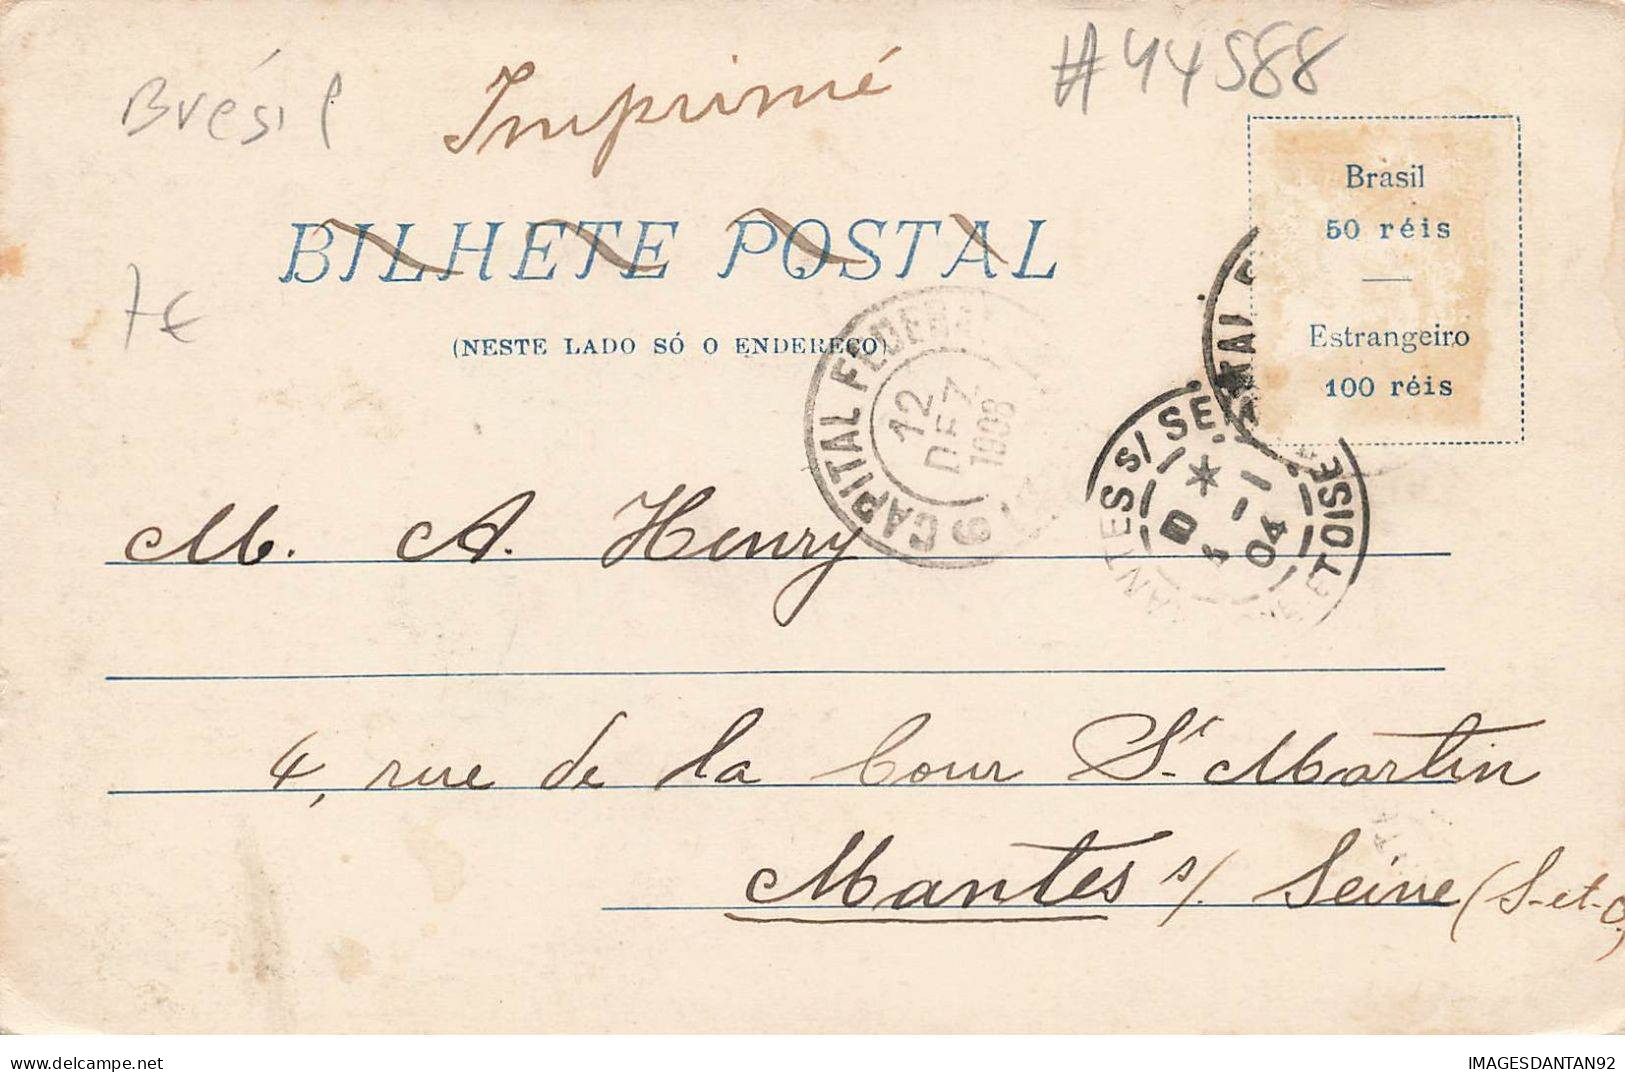 #44588
Brésil
Imprimé
BILHETE POSTAL
(NESTE LADO SÓ O ENDEREÇO)
7€
Brasil
50 réis
Estrangeiro
100 réis
CAPITAL FEDERAL
12
DEZ
MANTES S/ SEINE
SEINE ET OISE
04
M. A. Henry
4, rue de la Cour St Martin
Mantes s/ Seine (S-et-O)
delcampe.net
IMAGESDANTAN92